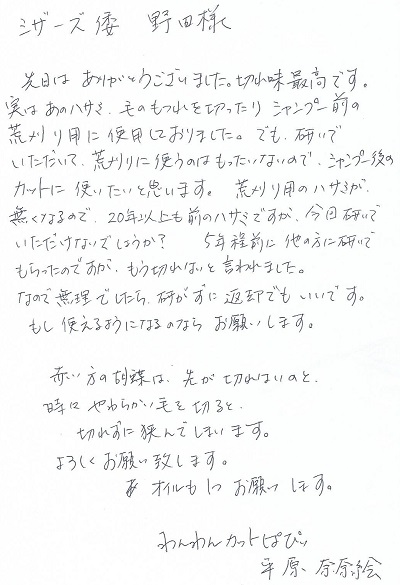 シザーズ倭 野田様
先日は ありがとうございました。切れ味最高です。
実はあのハサミ、毛のもつれを切ったり シャンプー前の
荒刈り用に使用しておりました。でも、研いで
いただいて、荒刈りに使うのはもったいないので、シャンプー後の
カットに使いたいと思います。 荒刈り用のハサミが、
無くなるので、20年以上も前のハサミですが、今回研いで
いただけないでしょうか? 5年程前に他の方に研いで
もらったのですが、もう切れないと言われました。
なので無理でしたら、研がずに返却でもいいです。
もし使えるようになるのなら お願いします。
赤い方の胡蝶は、先が切れないのと、
時に やわらかい毛を切ると、
切れずに狭んでしまいます。
よろしくお願い致します。
オイルも1つ お願いします。
わんわんカットぱぴぃ
平原 奈奈絵